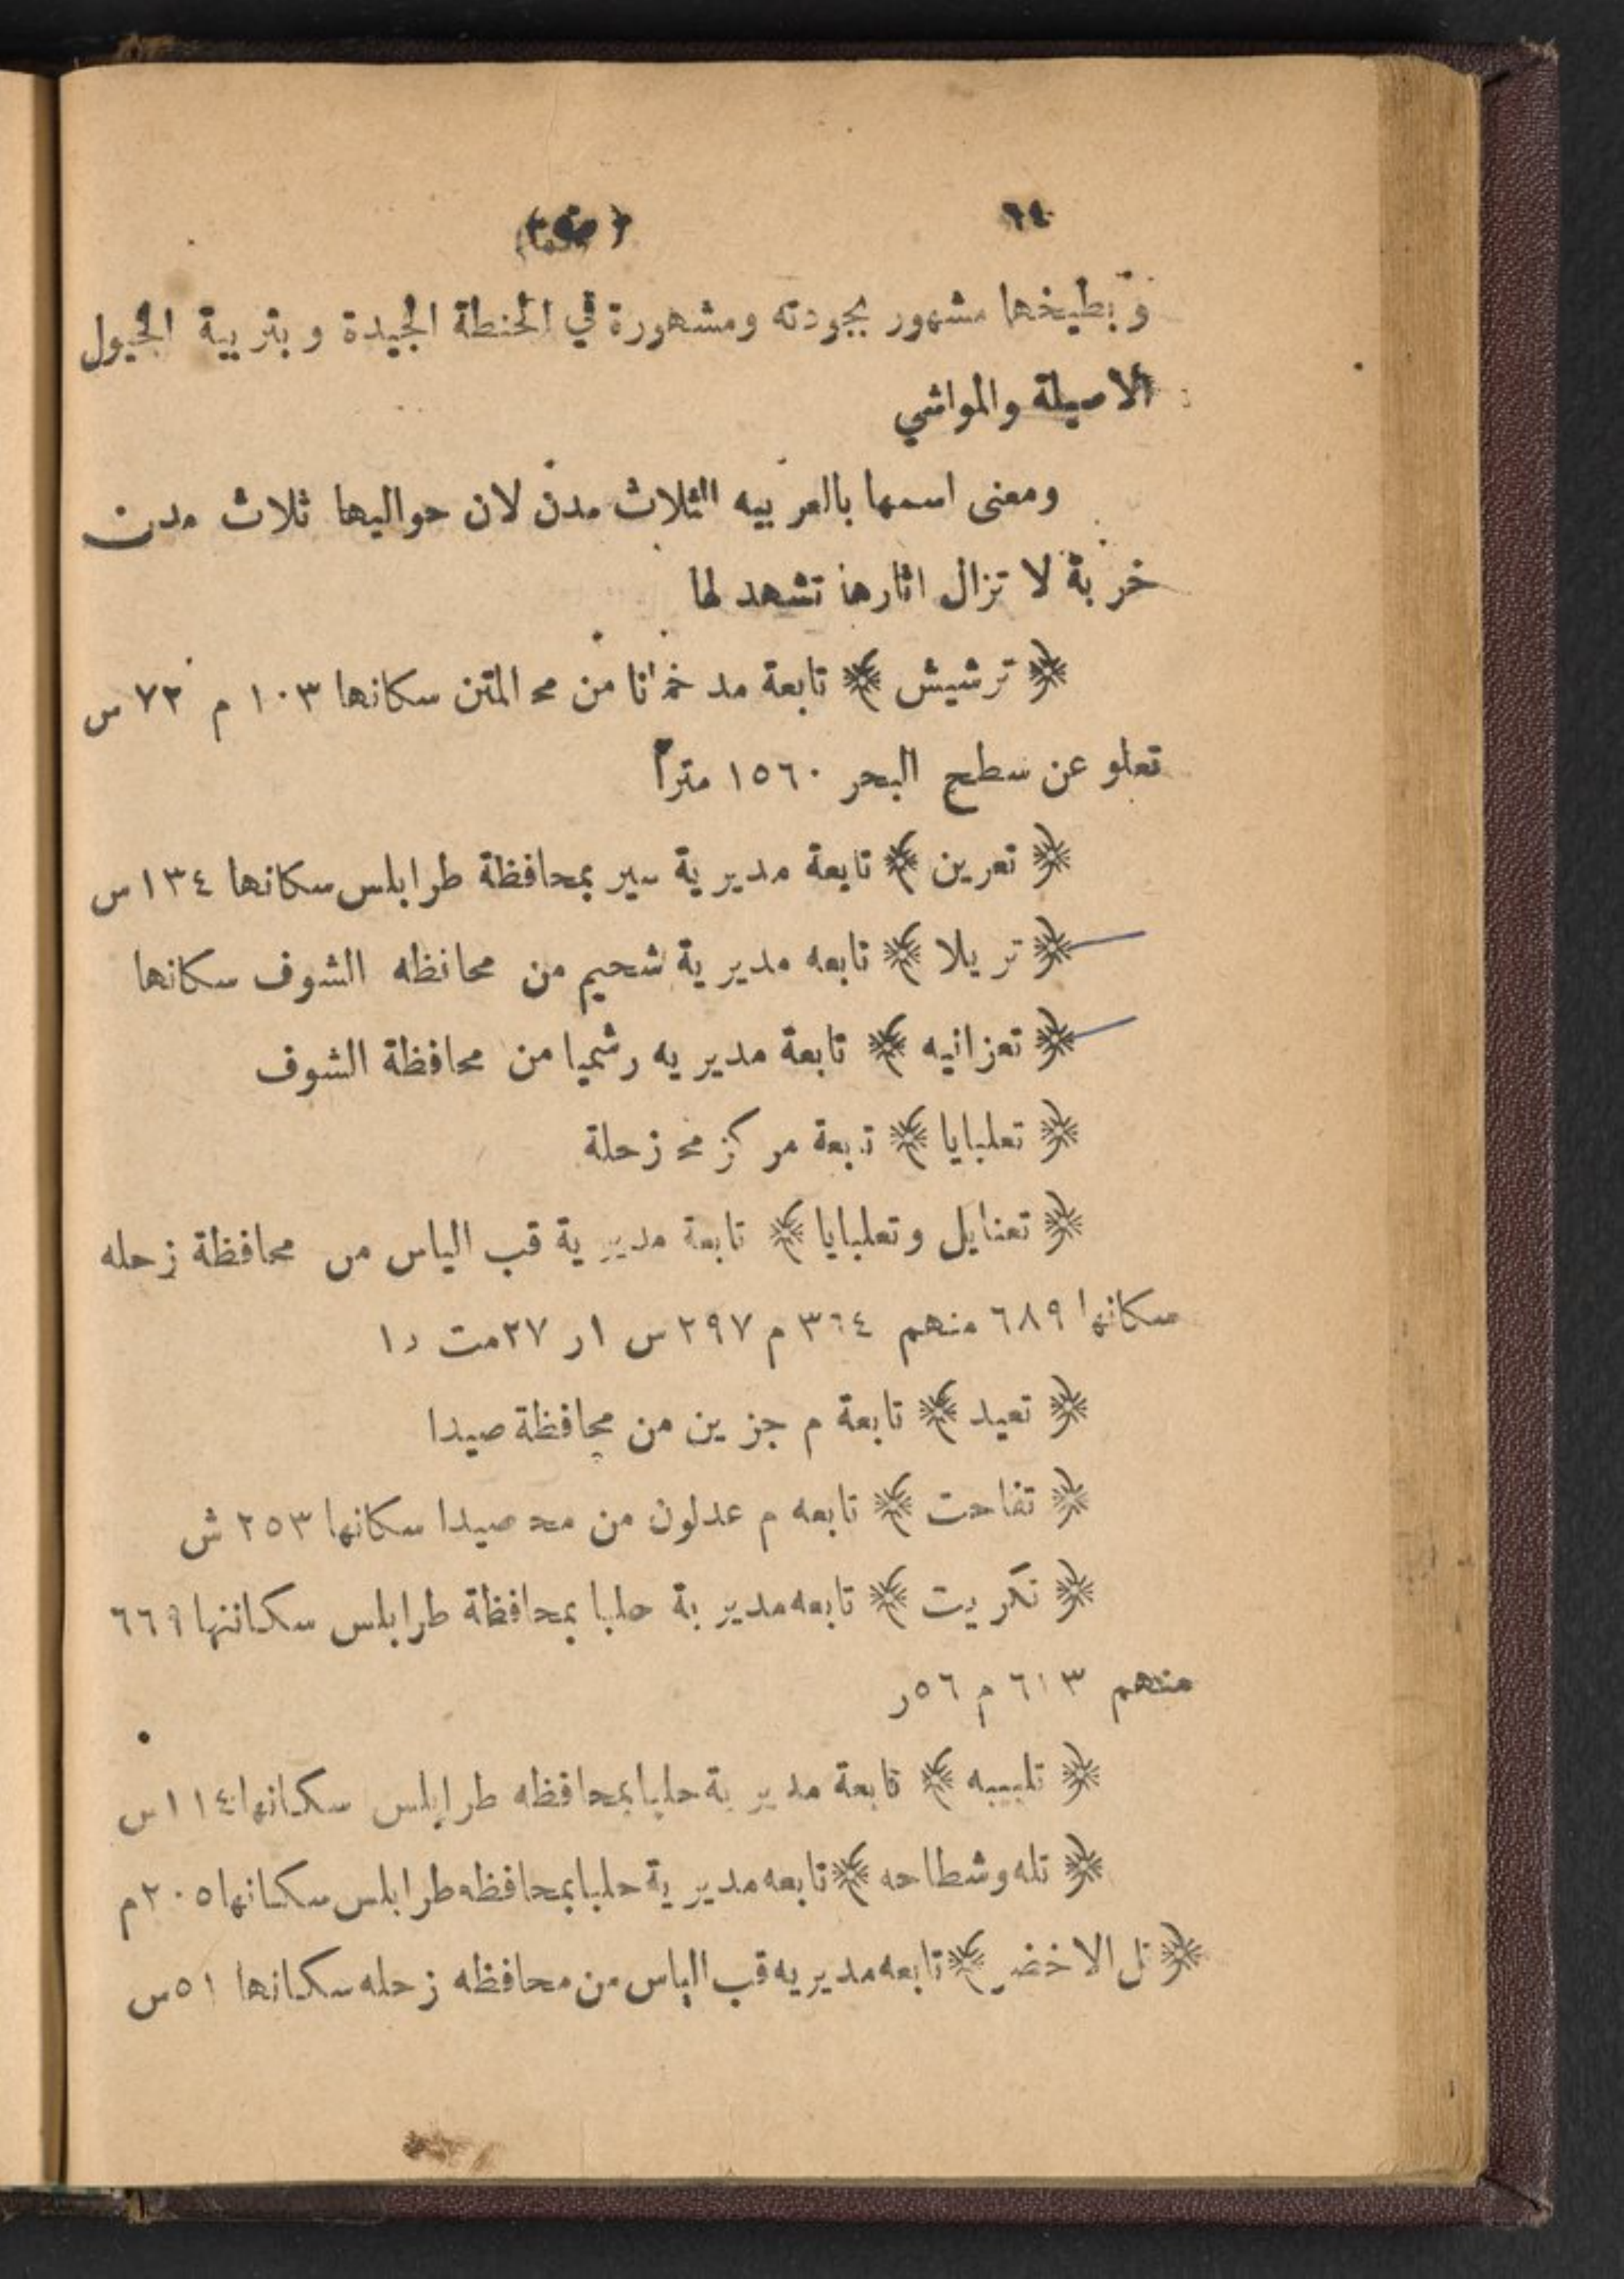 ٦٤
وبطيخها مشهور بجودته ومشهورة في الحنطة الجيدة و بتربية الخيول
الاصيلة والمواشي
ومعنى اسمها بالعربيه الثلاث مدن لان حواليها ثلاث مدن
خربة لا تزال اثارها تشهد لها
﴿ ترشيش ﴾ تابعة مد خمانا من مح المتن سكانها ١٠٣ م ٧٢ س
تعلو عن سطح البحر ١٥٦٠ متراً
﴿ تعرين ﴾ تابعة مديرية سير بمحافظة طرابلس سكانها ١٣٤ س
﴿ تريلا ﴾ تابعه مديرية شحيم من محافظه الشوف سكانها
﴿ تعزانيه ﴾ تابعة مديريه رشميا من محافظة الشوف
﴿ تعلبايا ﴾ تابعة مركز مح زحلة
﴿ تعنايل وتعلبايا ﴾ تابعة مديرية قب الياس من محافظة زحله
سكانها ٦٨٩ منهم ٣٦٤ م ٢٩٧ س ١ر ٢٧مت ١د
﴿ تعيد ﴾ تابعة م جزين من محافظة صيدا
﴿ تفاحت ﴾ تابعه م عدلون من مح صيدا سكانها ٢٥٣ ش
﴿ تكريت ﴾ تابعه مديرية حلبا بمحافظة طرابلس سكاننها ٦٦٩
منهم ٦١٣ م ٥٦ر
﴿ تلبيبه ﴾ تابعة مديرية حلبا بمحافظه طرابلس سكانها ١١٤س
﴿ تله وشطاحه ﴾ تابعه مديرية حلبا بمحافظه طرابلس سكانها ٢٠٥م
﴿ تل الاخضر ﴾ تابعه مديريه قب الياس من محافظه زحله سكانها ٥١س